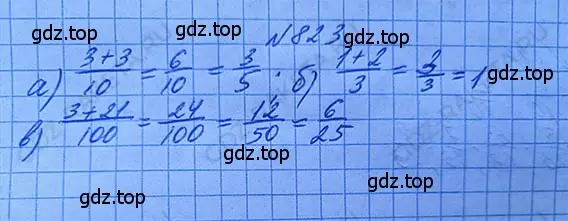 gdz.top N823 gdz.top
а) (3+3)/10 = 6/10 = 3/5. б) (1+2)/3 = 3/3 = 1
gdz.top
в) (3+21)/100 = 24/100 = 12/50 = 6/25
gdz.top gdz.top
gdz.top gdz.top